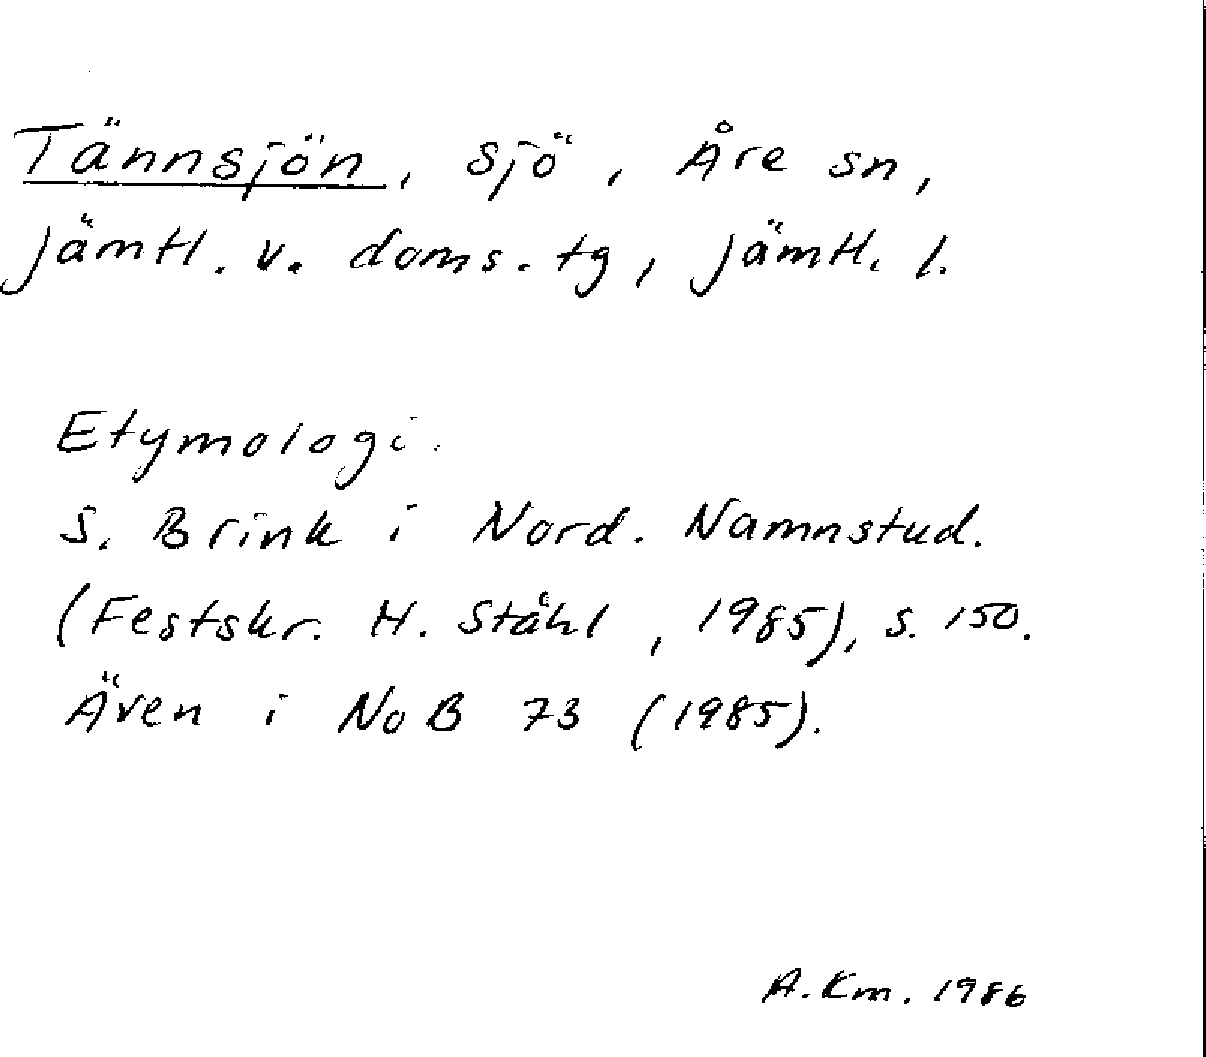 Tännsjön, sjö, Åre sn,
Jämtl. v. doms. tg, Jämtl. l.
Etymologi.
S. Brink i Nord. Namnstud.
(Festskr. H. Ståhl, 1985), s. 150.
Även i NoB 73 (1985).
A. Km. 1986